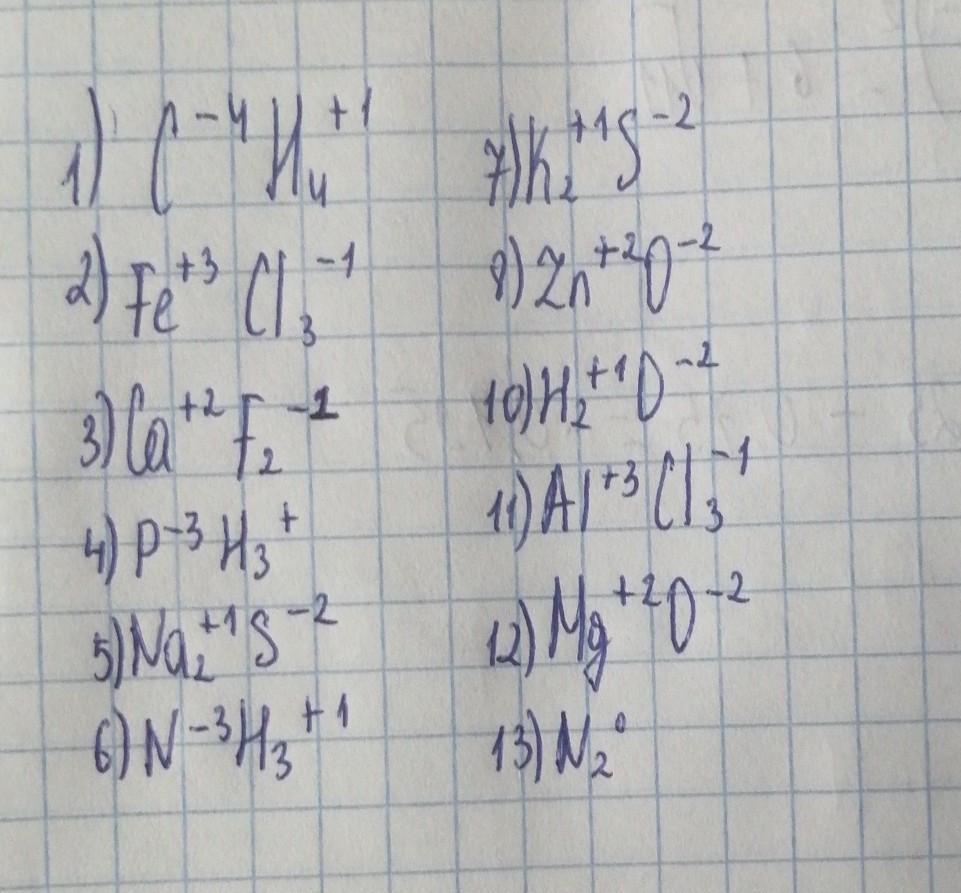 1) C⁻⁴H₄⁺¹
2) Fe⁺³Cl₃⁻¹
3) Ca⁺²F₂⁻¹
4) P⁻³H₃⁺
5) Na₂⁺¹S⁻²
6) N⁻³H₃⁺¹
7) K₂⁺¹S⁻²
9) Zn⁺²O⁻²
10) H₂⁺¹O⁻²
11) Al⁺³Cl₃⁻¹
12) Mg⁺²O⁻²
13) N₂⁰